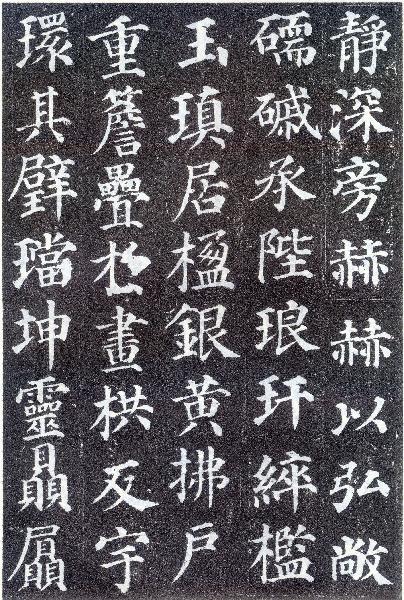 靜深旁赫赫以弘敞
礝磩承陛琅玕綷檻
玉瑱居楹銀黄拂戶
重簷疊畫栱反宇
環其璧璫坤靈贔屭